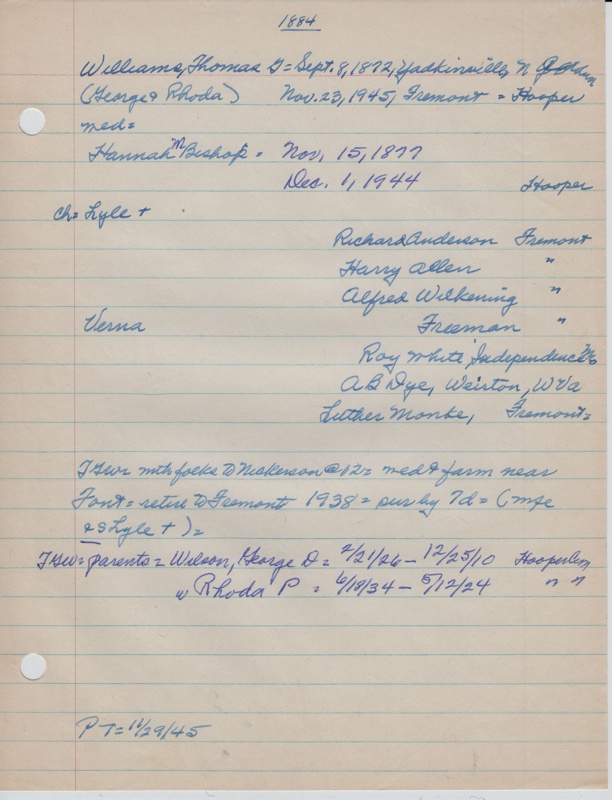 1884
Williams, Thomas G = Sept. 8, 1872, Yadkinville, N
(George & Rhoda) Nov. 23, 1945, Fremont = Hooper
med =
Hannah M Bishop = Nov, 15, 1877
Dec. 1, 1944 Hooper
Ch = Lyle +
Richard Anderson Fremont
Harry Allen "
Alfred Wilkening "
Verna Freeman "
Roy White, Independence Mo
A B Dye, Weirton, W Va
Luther Monke, Fremont =
TGW = mth focks to Nickerson @ 12 = med & farm near
Font = retire to Fremont 1938 = sur by 7d = (mfe
& S Lyle +) =
TGW = parents = Wilson, George D = 2/21/26 — 12/25/10 Hooper Cem
w Rhoda P = 6/18/34 — 5/12/24 " "
P T = 11/29/45